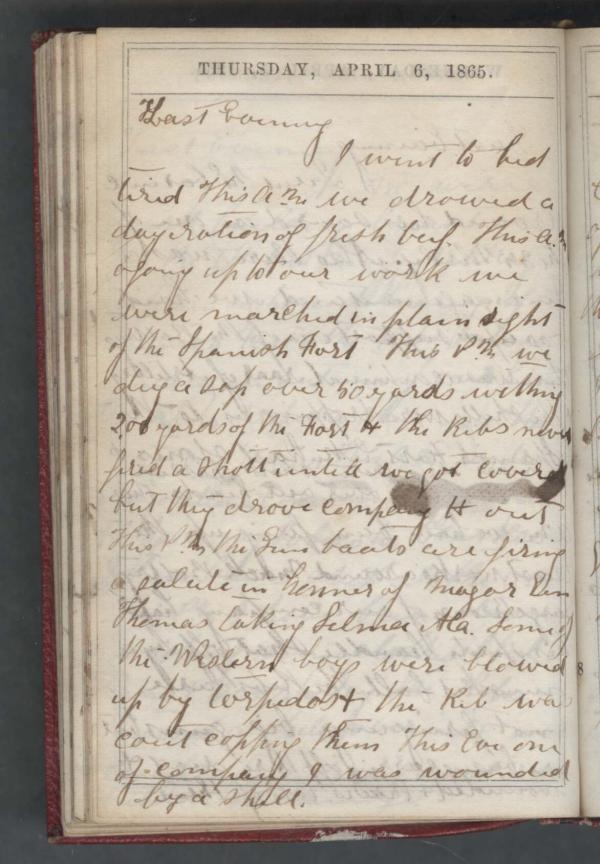 THURSDAY, APRIL 6, 1865.
Last Evening
I went to bed
tired This A m we drowed a
day ration of fresh beef. This A. m
agoing up to our work we
were marched in plain sight
of the Spanish Fort This P m we
dug a sap over 50 yards withing
200 yards of the Fort & the Rebs never
fired a shott untill we got covered
but they drove company H out
This P m the Gun boats are firing
a salute in honner of Magor Gen
Thomas taking Selma Ala. Some of
the Western boys were blowed
up by torpedos & the Reb was
cout copping them This Eve one
of company I was wounded
by a shell.